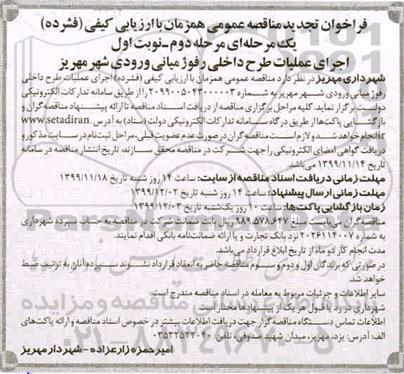 فراخوان تجدید مناقصه عمومی همزمان با ارزیابی کیفی (فشرده)
یک مرحله‌ای مرحله دوم-نوبت اول
اجرای عملیات طرح داخلی رفوژ میانی ورودی شهر مهریز
شهرداری مهریز در نظر دارد مناقصه عمومی همزمان با ارزیابی کیفی (فشرده) اجرای عملیات طرح داخلی
رفوژ میانی ورودی شهر مهریز به شماره را از طریق سامانه تدارکات الکترونیکی
دولت برگزار نماید. کلیه مراحل برگزاری مناقصه از دریافت اسناد مناقصه تا ارائه پیشنهاد مناقصه‌گران و
بازگشایی پاکت‌ها از طریق درگاه سامانه تدارکات الکترونیکی دولت (ستاد) به آدرس www.setadiran.
ir انجام خواهد شد و لازم است مناقصه‌گران در صورت عدم عضویت قبلی، مراحل ثبت‌نام در سایت مذکور و
دریافت گواهی امضای الکترونیکی را جهت شرکت در مناقصه محقق سازند. تاریخ انتشار مناقصه در سامانه
تاریخ ۱۳۹۹/۱۱/۱۴ می‌باشد.
مهلت زمانی دریافت اسناد مناقصه از سایت: ساعت ۱۴ روز شنبه تاریخ ۱۳۹۹/۱۱/۱۸
مهلت زمانی ارسال پیشنهاد: ساعت ۱۴ روز شنبه تاریخ ۱۳۹۹/۱۲/۰۲
زمان بازگشایی پاکت‌ها: ساعت ۱۰ روز یکشنبه تاریخ ۱۳۹۹/۱۲/۰۳
مناقصه‌گران می‌بایست مبلغ ۹۸۹.۵۷۸.۶۴۷ ریال بابت ضمانت شرکت در مناقصه به حساب سپرده شهرداری
به شماره ۲۰۲۶۱۱۴۰۰۷ نزد بانک تجارت و یا ارائه ضمانت‌نامه بانکی اقدام نمایند.
مدت انجام کار دو ماه از تاریخ ابلاغ قرارداد می‌باشد.
در صورتی که برندگان اول و دوم و سوم مناقصه حاضر به انعقاد قرارداد نشوند سپرده آنان به ترتیب ضبط
خواهد شد.
سایر اطلاعات و جزئیات مربوط به معامله در اسناد مناقصه مندرج است.
شهرداری در رد یا قبول هر یک از پیشنهادها مختار است.
اطلاعات تماس دستگاه مناقصه گزار جهت دریافت اطلاعات بیشتر در خصوص اسناد مناقصه و ارائه پاکت‌های
الف: آدرس: یزد، مهریز، میدان شهید صدوقی، تلفن ۰۳۵۳۲۵۲۲۰۴۰
امیرحمزه زارعزاده - شهردار مهریز